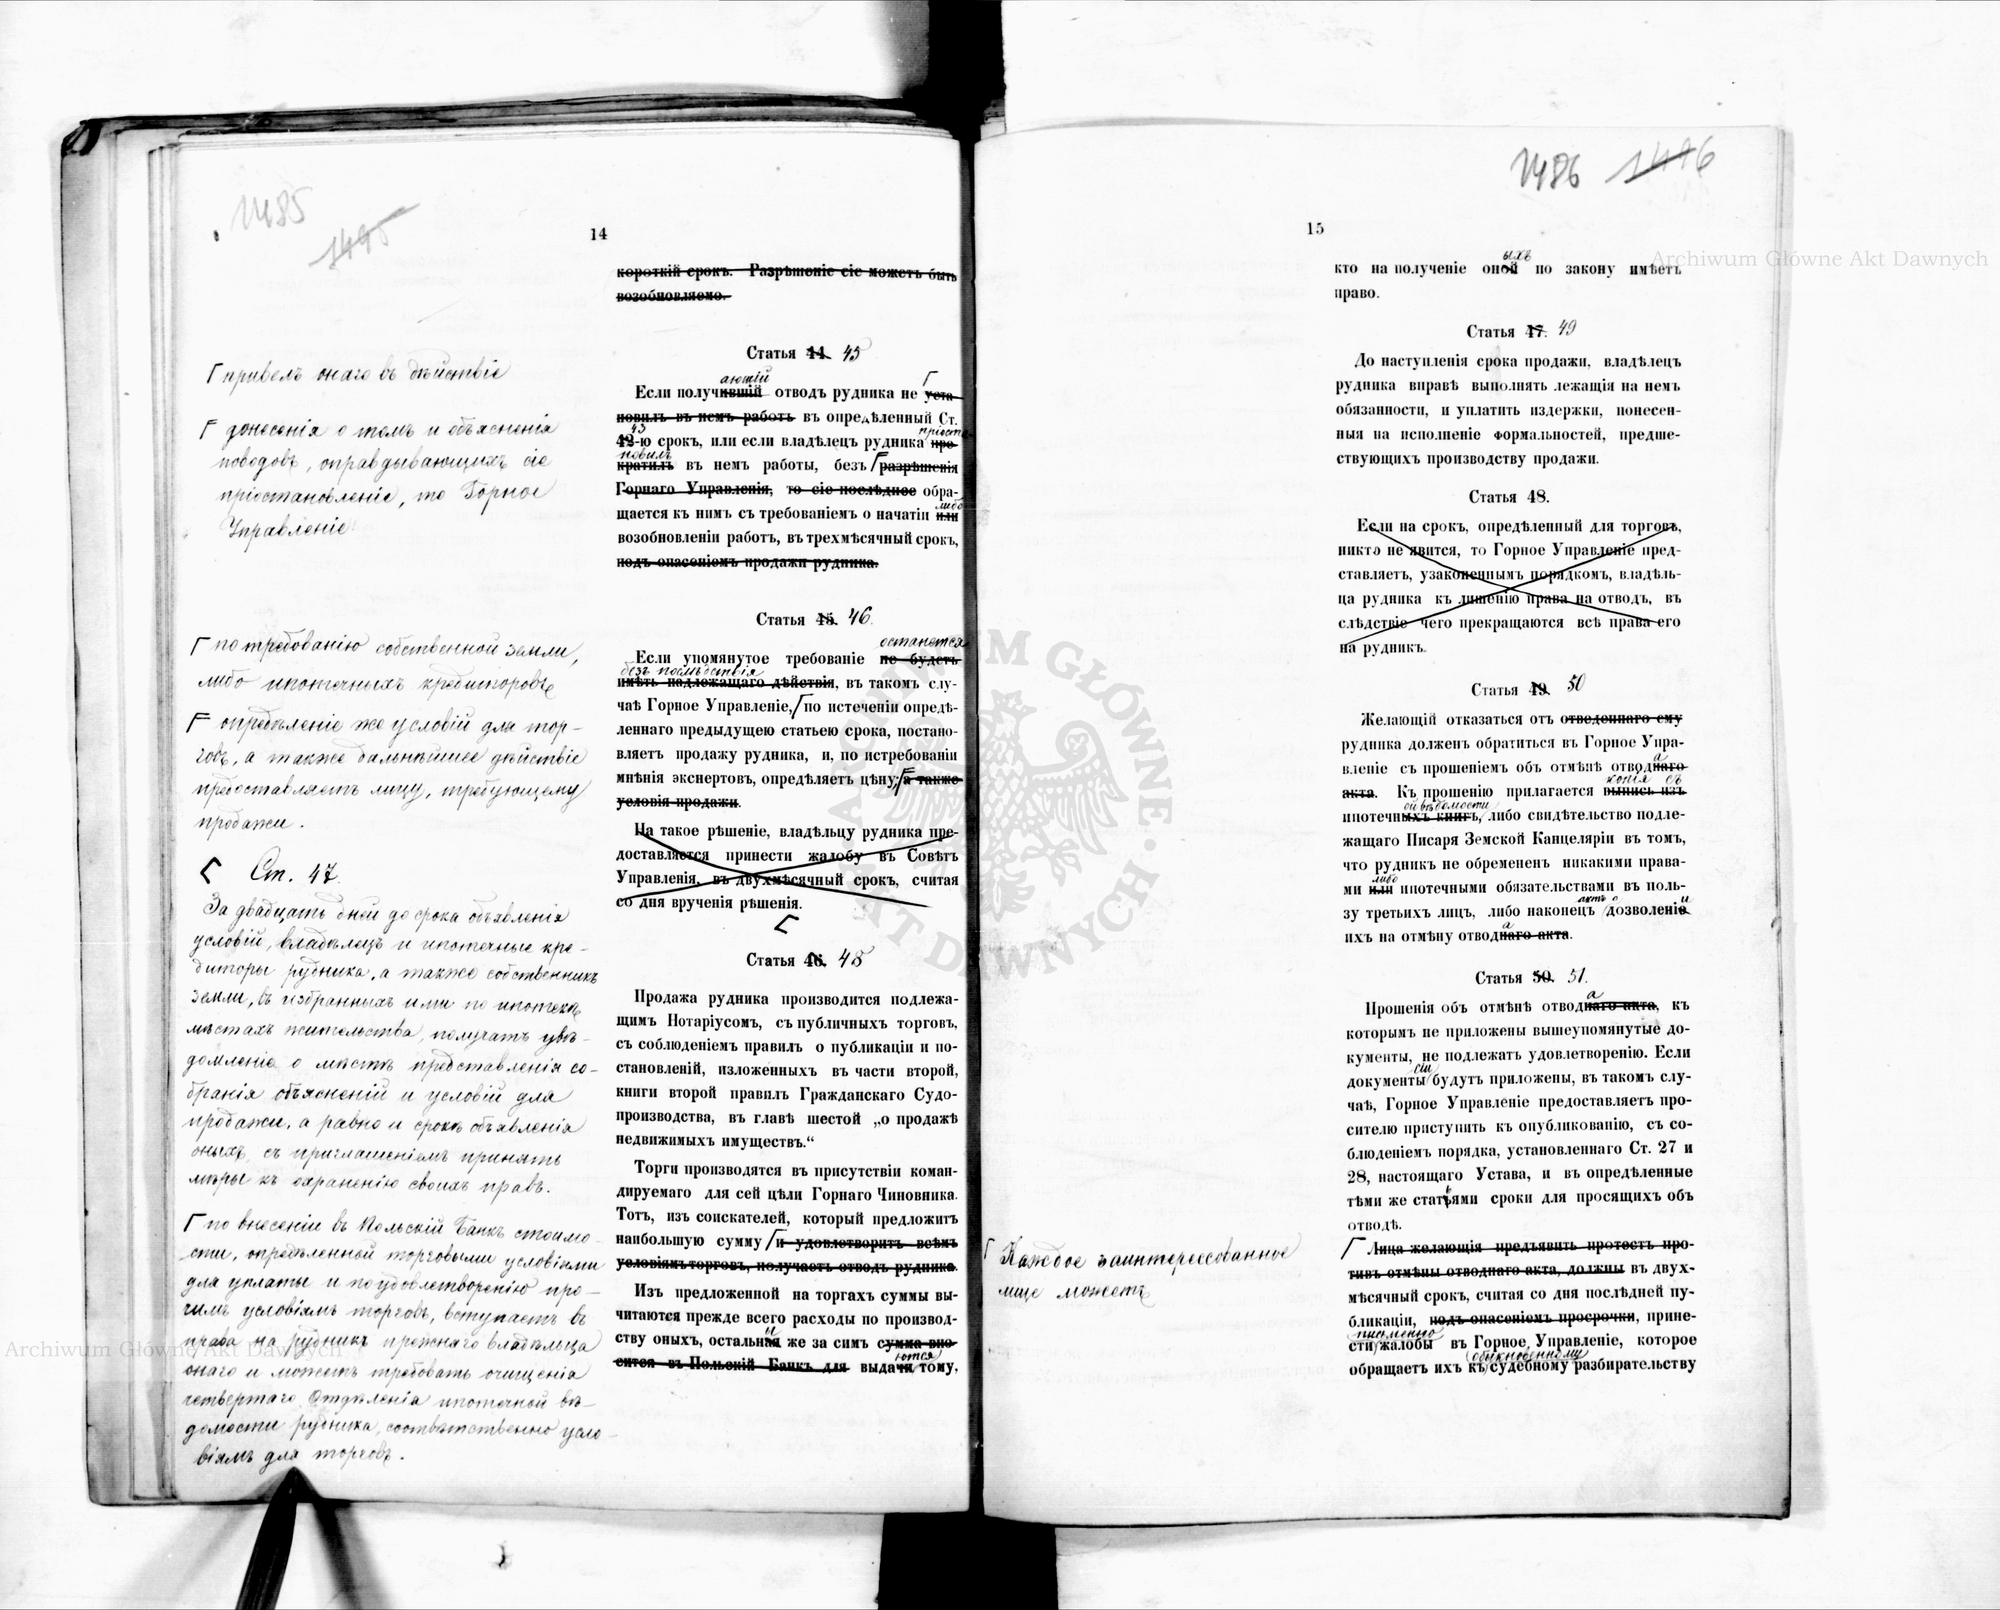 1485
1495
14
короткій срокъ. Разрѣшеніе сіе можетъ быть
возобновляемо.
Статья 44. 45
ающій
Если получившій отводъ рудника не уста-
новилъ въ немъ работъ въ опредѣленный Ст.
43
42-ю срокъ, или если владѣлецъ рудника пре-
пріоста
новилъ
кратилъ въ немъ работы, безъ разрѣшенія
Горнаго Управленія, то сіе послѣднее обра-
щается къ нимъ съ требованіемъ о начатіи или
либо
возобновленіи работъ, въ трехмѣсячный срокъ,
подъ опасеніемъ продажи рудника.
Статья 45. 46.
останется
Если упомянутое требованіе не будетъ
безъ послѣдствія
имѣть надлежащаго дѣйствія, въ такомъ слу-
чаѣ Горное Управленіе, по истеченіи опредѣ-
леннаго предыдущею статьею срока, постано-
вляетъ продажу рудника, и, по истребованіи
мнѣнія экспертовъ, опредѣляетъ цѣну, а также
условія продажи.
На такое рѣшеніе, владѣльцу рудника пре-
доставляется принести жалобу въ Совѣтъ
Управленія, въ двухмѣсячный срокъ, считая
со дня врученія рѣшенія.
Статья 46. 48
Продажа рудника производится подлежа-
щимъ Нотаріусомъ, съ публичныхъ торговъ,
съ соблюденіемъ правилъ о публикаціи и по-
становленій, изложенныхъ въ части второй,
книги второй правилъ Гражданскаго Судо-
производства, въ главѣ шестой „о продажѣ
недвижимыхъ имуществъ.“
Торги производятся въ присутствіи коман-
дируемаго для сей цѣли Горнаго Чиновника.
Тотъ, изъ соискателей, который предложитъ
наибольшую сумму и удовлетворитъ всѣмъ
условіямъ торговъ, получаетъ отводъ рудника.
Изъ предложенной на торгахъ суммы вы-
читаются прежде всего расходы по производ-
ству оныхъ, остальная же за симъ сумма вно-
сится въ Польскій Банкъ для выдачи тому,
ются
привелъ онаго въ дѣйствіе
донесенія о томъ и объясненія
поводовъ, оправдывающихъ сіе
пріостановленіе, то Горное
Управленіе
по требованію собственной земли,
либо ипотечныхъ кредиторовъ
опредѣленіе же условій для тор-
говъ, а также дальнѣйшее дѣйствіе
предоставляетъ лицу, требующему
продажи.
Ст. 47.
За двадцать дней до срока объявленія
условій, владѣлецъ и ипотечные кре-
диторы рудника, а также собственникъ
земли, въ избранныхъ ими по ипотекѣ
мѣстахъ жительства, получатъ увѣ-
домленіе о мѣстѣ представленія со-
бранія объясненій и условій для
продажи, а равно и срокѣ объявленія
оныхъ, съ приглашеніемъ принять
мѣры къ охраненію своихъ правъ.
по внесеніи въ Польскій Банкъ стоимо-
сти, опредѣленной торговыми условіями
для уплаты и по удовлетворенію про-
чимъ условіямъ торговъ, вступаетъ въ
права на рудникъ прежняго владѣльца
онаго и можетъ требовать очищенія
четвертаго Отдѣленія ипотечной вѣ-
домости рудника, соотвѣтственно усло-
віямъ для торговъ.
1486 1496
15
ыхъ
кто на полученіе оной по закону имѣетъ
право.
Статья 47. 49
До наступленія срока продажи, владѣлецъ
рудника вправѣ выполнять лежащія на немъ
обязанности, и уплатить издержки, понесен-
ныя на исполненіе формальностей, предше-
ствующихъ производству продажи.
Статья 48.
Если на срокъ, опредѣленный для торговъ,
никто не явится, то Горное Управленіе пред-
ставляетъ, узаконеннымъ порядкомъ, владѣль-
ца рудника къ лишенію права на отводъ, въ
слѣдствіе чего прекращаются всѣ права его
на рудникъ.
Статья 49. 50
Желающій отказаться отъ отведеннаго ему
рудника долженъ обратиться въ Горное Упра-
вленіе съ прошеніемъ объ отмѣнѣ отводнаго
а
акта. Къ прошенію прилагается выпись изъ
копія съ
ой вѣдомости
ипотечныхъ книгъ, либо свидѣтельство подле-
жащаго Писаря Земской Канцеляріи въ томъ,
что рудникъ не обремененъ никакими права-
ми или ипотечными обязательствами въ поль-
либо
зу третьихъ лицъ, либо наконецъ дозволеніе
актъ о
и
ихъ на отмѣну отводнаго акта.
а
Статья 50. 51.
Прошенія объ отмѣнѣ отводнаго акта, къ
а
которымъ не приложены вышеупомянутые до-
кументы, не подлежатъ удовлетворенію. Если
документы будутъ приложены, въ такомъ слу-
сіи
чаѣ, Горное Управленіе предоставляетъ про-
сителю приступить къ опубликованію, съ со-
блюденіемъ порядка, установленнаго Ст. 27 и
28, настоящаго Устава, и въ опредѣленные
тѣми же статьями сроки для просящихъ объ
отводѣ.
Лица желающія предъявить протестъ про-
тивъ отмѣны отводнаго акта, должны въ двух-
мѣсячный срокъ, считая со дня послѣдней пу-
бликаціи, подъ опасеніемъ просрочки, прине-
письменно
сти жалобы въ Горное Управленіе, которое
обыкновенному
обращаетъ ихъ къ судебному разбирательству
Каждое заинтересованное
лице можетъ
Archiwum Główne Akt Dawnych
Archiwum Główne Akt Dawnych
ARCHIWUM GŁÓWNE AKT DAWNYCH